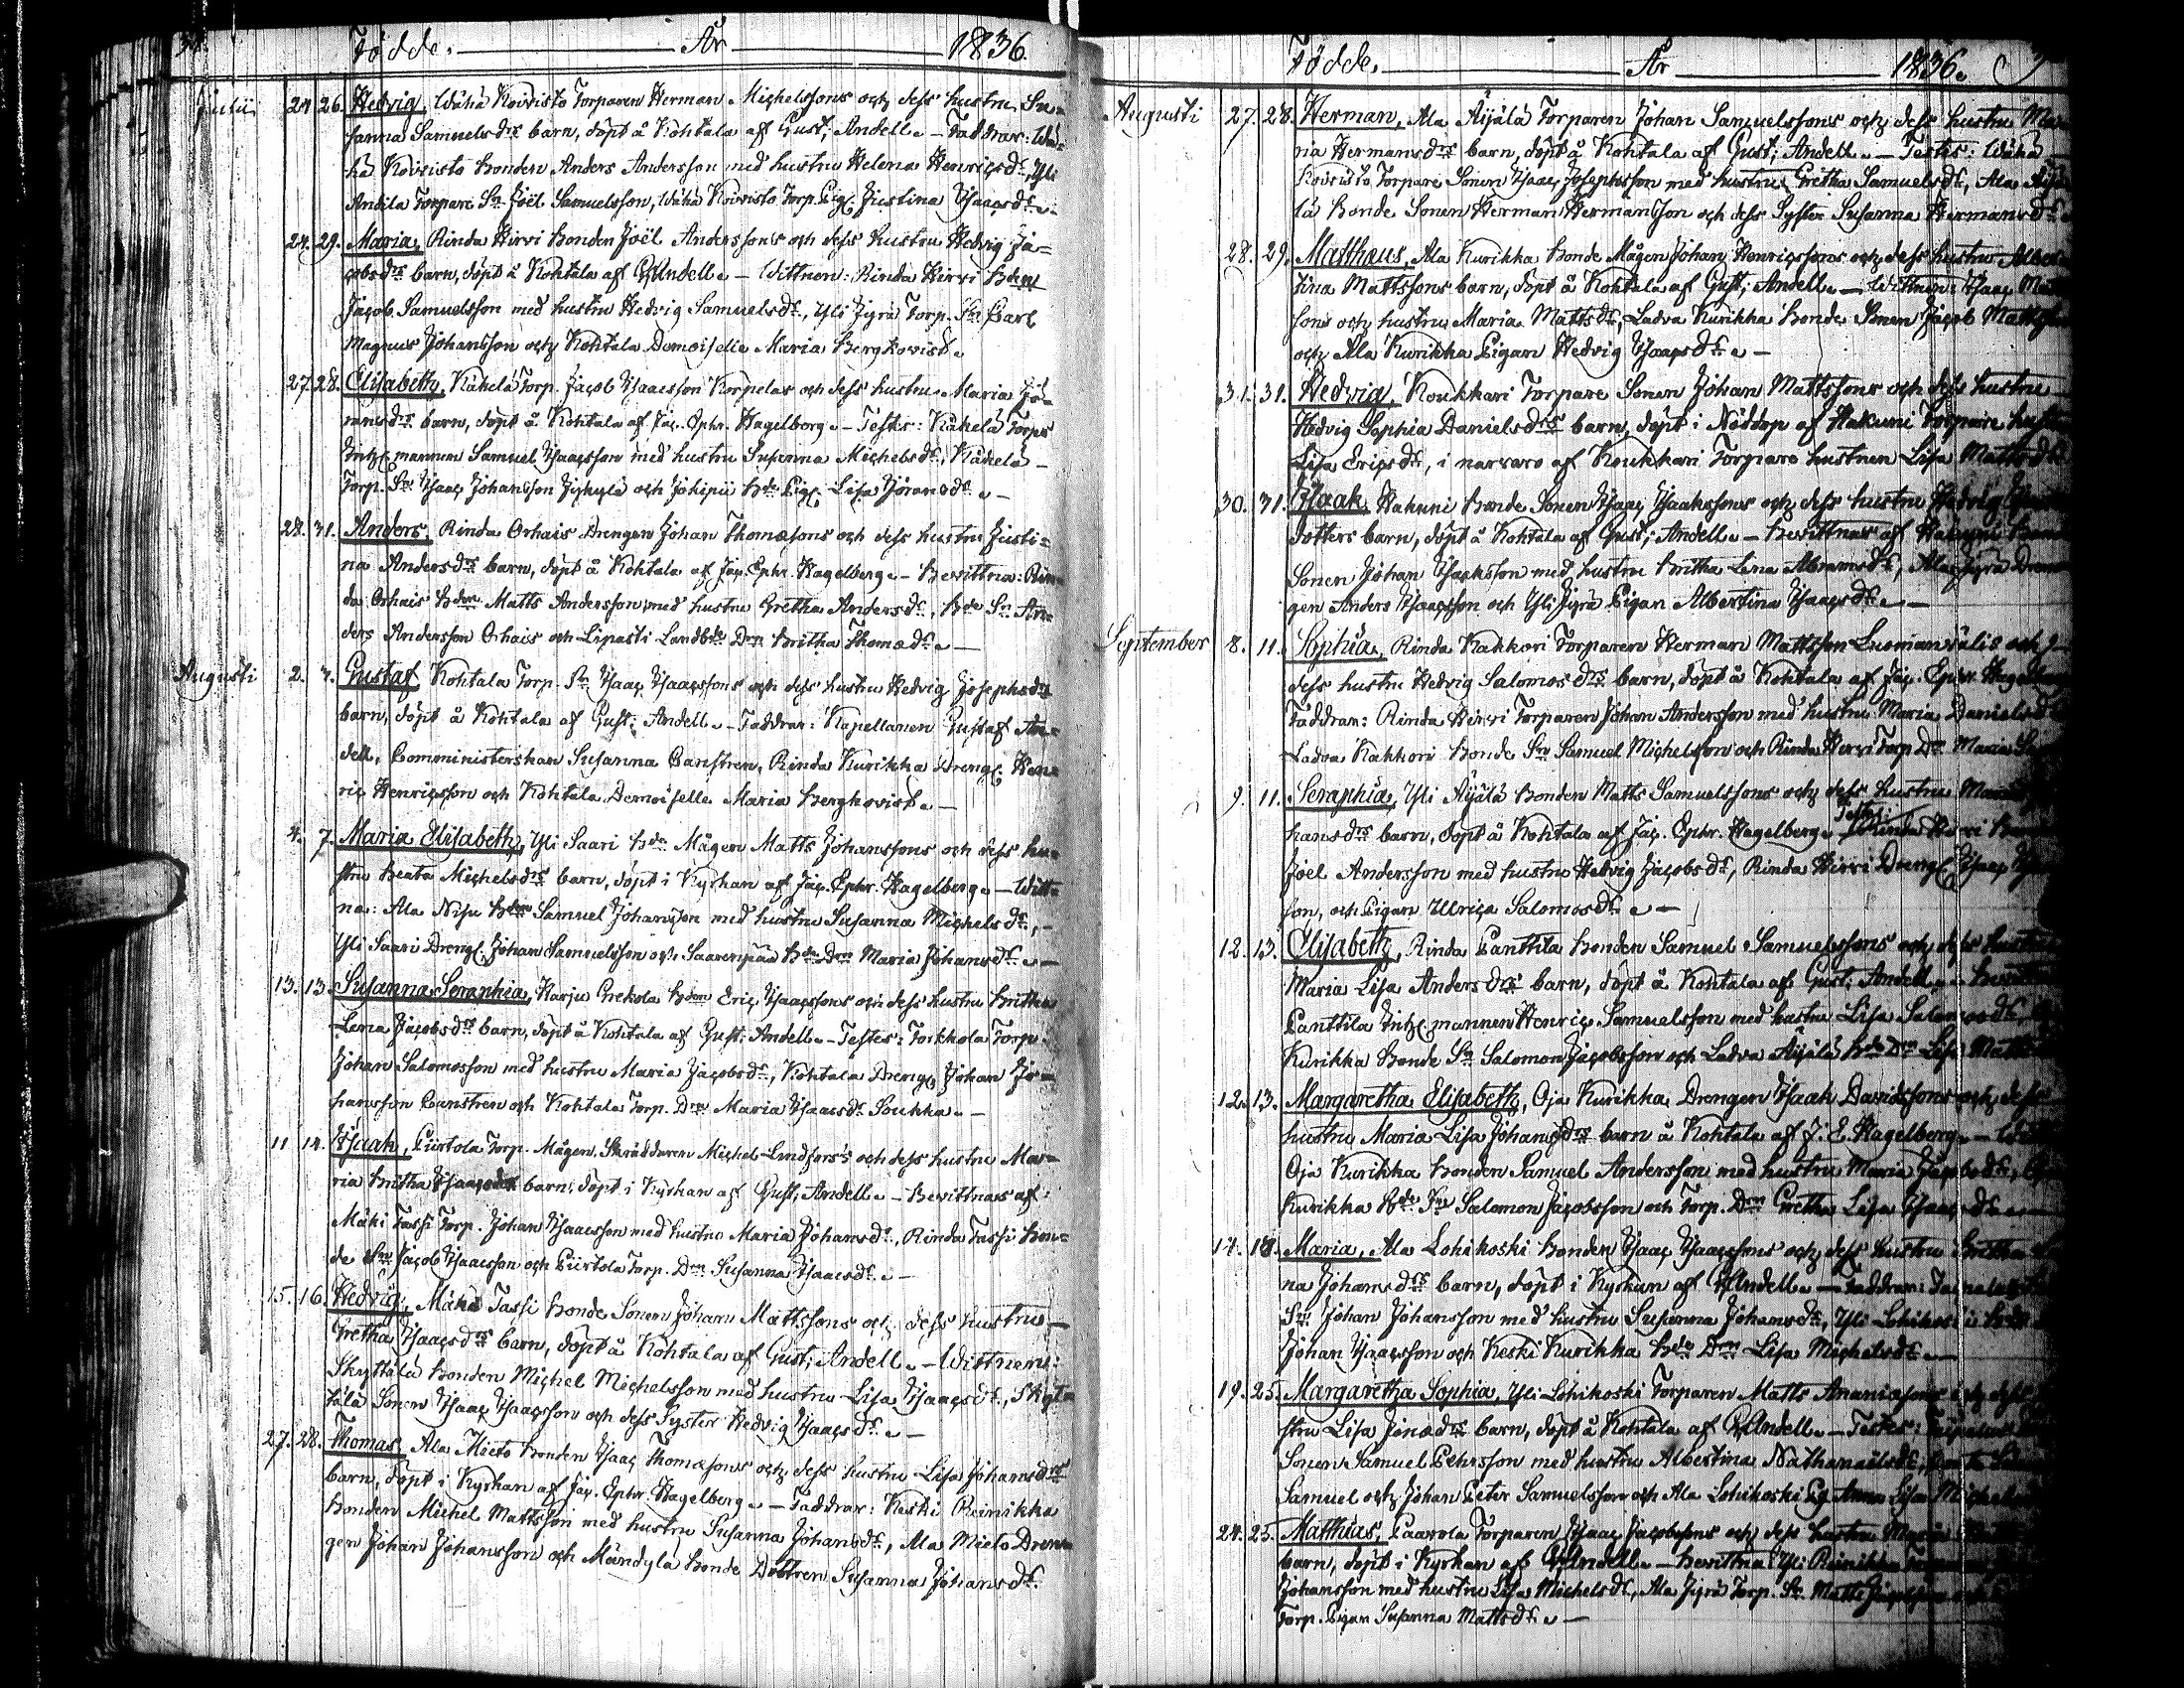 Födde. År 1836.
Julii 24. 26. Hedvig, Wähä Koivisto Torparen Herman Michelssons och dess hustru Su=
sanna Samuelsdrs barn, döpt å Kohtala af Gust; Andell. – Faddrar: Wä=
hä Koivisto Bonden Anders Andersson med hustru Helena Henricsdr, Yli
Andila Torpare Sn Joël Samuelsson, Wähä Koivisto Torp. Pig. Justina Isaacsdr. –
24. 29. Maria, Rinda Hirvi Bonden Joël Anderssons och dess hustru Hedvig Ja=
cobsdrs barn, döpt å Kohtala af GAndell. – Wittnen: Rinda Hirvi Bden
Jacob Samuelsson med hustru Hedvig Samuelsdr, Yli Jyrä Torp. Sn Carl
Magnus Johansson och Kohtala Demoiselle Maria Bergkovist.
27. 28. Elisabeth, Käkelä Torp. Jacob Isaacsson Korpelas och dess hustru Maria Jö=
ransdrs barn, döpt å Kohtala af Jac. Ephr. Hagelberg. – Testes: Käkelä Torps
Inhs mannen Samuel Isaacsson med hustru Susanna Michelsdr, Käkelä –
Torp. Sn Isaac Johansson Jyhylä och Jokipii Bde Pig. Lisa Jöransdr. –
28. 31. Anders, Rinda Orhais Drengen Johan Thomæsons och dess hustru Justi=
na Andersdrs barn, döpt å Kohtala af Jac. Ephr. Hagelberg. – Bevittna: Rin=
da Orhais Bden Matts Andersson med hustru Gretha Andersdr, Bde Sn An=
ders Andersson Orhais och Lipasti Landbde Drn Britha Thomædr. –
Augusti 2. 7. Gustaf, Kohtala Torp. Sn Isaac Isaacssons och dess hustru Hedvig Josephsdrs
barn, döpt å Kohtala af Gust: Andell. – Faddrar: Kapellanen Gustaf An=
dell, Comministerskan Susanna Canstren, Rinda Kurikka Dreng. Hen=
ric Henricsson och Kohtala Demoiselle Maria Berghovist. –
4. 7. Maria Elisabeth, Yli Saari Bde Mågen Matts Johanssons och dess hu=
stru Beata Michelsdrs barn, döpt i Kyrkan af Jac. Ephr. Hagelberg. – Witt=
na: Ala Nisu Bden Samuel Johansson med hustru Susanna Michelsdr, –
Yli Saari Dreng. Johan Samuelsson och Saarenpää Bde Drn Maria Johansdr. –
13. 13. Susanna Seraphia, Harju Grekola Bden Eric Isaacssons och dess hustru Britha
Lena Jacobsdrs barn, döpt å Kohtala af Gust: Andell. – Testes: Torkkola Torp.
Johan Salomosson med hustru Maria Jacobsdr, Kohtala Dreng. Johan Jo=
hansson Canstren och Kohtala Torp. Drn Maria Isaacsdr Soukka. –
11. 14. Isaak, Piirtola Torp. Mågen, Skräddaren Michel Lindfors's och dess hustru Ma=
ria Britha Isaacsdrs barn, döpt i Kyrkan af Gust; Andell. – Bevittnas af:
Mäki Tassi Torp. Johan Isaacsson med hustru Maria Johansdr, Rinda Tassi Bon=
de Sn Jacob Isaacsson och Piirtola Torp. Drn Susanna Isaacsdr. –
15. 16. Hedvig, Mäki Tassi Bonde Sonen Johan Mattssons och dess hustru –
Gretha Isaacsdrs barn, döpt å Kohtala af Gust; Andell. – Wittnen:
Skyttälä Bonden Michel Michelsson med hustru Lisa Isaacsdr, Skyt=
tälä Sonen Isaac Isaacsson och dess Syster Hedvig Isaacsdr. –
27. 28. Thomas, Ala Mieto Bonden Isaac Thomæsons och dess hustru Lisa Johansdrs
barn, döpt i Kyrkan af Jac. Ephr. Hagelberg. – Faddrar: Keski Reinikka
Bonden Michel Mattsson med hustru Susanna Johansdr, Ala Mieto Dren=
gen Johan Johansson och Mändylä Bonde Dottren Susanna Johansdr.
Födde. År 1836.
Augusti 27. 28. Herman, Ala Äijälä Torparen Johan Samuelssons och dess hustru Ma
ria Hermansdrs barn, döpt å Kohtala af Gust; Andell. – Testes: Wähä
Koivisto Torpare Sonen Isaac Josephsson med hustru Gretha Samuelsdr, Ala Äijä
lä Bonde Sonen Herman Hermansson och dess Syster Susanna Hermansdr.
28. 29. Matthæus, Ala Kurikka Bonde Mågen Johan Henricssons och dess hustru Alber
tina Mattssons barn, döpt å Kohtala af Gust; Andell. – Wittnen: Isaac
sons och hustru Maria Mattsdr, Ladva Kurikka Bonde Sonen Jacob
och Ala Kurikka Pigan Hedvig Isaacsdr. –
31. 31. Hedvig, Koukkari Torpare Sonen Johan Mattssons och dess hustru
Hedvig Sophia Danielsdrs barn, döpt i Nöddop af Hakuni Torpare hustru
Lisa Ericsdr, i narvaro af Koukkari Torpare hustrun Lisa Mattsdr
30. 31. Isaak, Hakuni Bonde Sonen Isaac Isaakssons och dess hustru Hedvig
dotters barn, döpt å Kohtala af Gust; Andell. – Bevittnas af Hakuni Bonde
Sonen Johan Isacksson med hustru Britha Lena Abramsdr, Ala Jyrä Dren
gen Anders Isaacsson och Yli Jyrä Pigan Albertina Isaacsdr. –
September 8. 11. Sophia, Rinda Kakkori Torparen Herman Mattsson Luomanvälis och –
dess hustru Hedvig Salomosdrs barn, döpt å Kohtala af Jac. Ephr. Hagelberg
Faddrar: Rinda Hirvi Torparen Johan Andersson med hustru Maria Danielsdr
Ladva Kakkori Bonde Sn Samuel Michelsson och Rinda Hirvi Torp Drn Maria
9. 11. Seraphia, Yli Äijälä Bonden Matts Samuelssons och dess hustru Maria
hansdrs barn, döpt å Kohtala af Jac. Ephr. Hagelberg. Testes: Rinda Hirvi
Joël Andersson med hustru Hedvig Jacobsdr, Rinda Hirvi Dreng. Isaac
son, och Pigan Ulrica Salomosdr. –
12. 13. Elisabeth, Rinda Panttila Bonden Samuel Samuelssons och dess hustru
Maria Lisa Andersdrs barn, döpt å Kohtala af Gust; Andell. –
Panttila Inhs mannen Henric Samuelsson med hustru Lisa Salomosdr,
Kurikka Bonde Sn Salomon Jacobsson och Ladva Äijälä Bde Drn Lisa
12. 13. Margaretha Elisabeth, Oja Kurikka Drengen Isaak Davidssons och dess
hustru Maria Lisa Johansdrs barn å Kohtala af J. E. Hagelberg. –
Oja Kurikka Bonden Samuel Andersson med hustru Maria Jacobsdr,
Kurikka Bde Sn Salomon Jacobsson och Torp. Drn Gretha Lisa Isaacsdr. –
17. 18. Maria, Ala Lohikoski Bonden Isaac Isaacssons och dess hustru Britha
na Johansdrs barn, döpt i Kyrkan af GAndell. – Faddrar:
Sn Johan Johansson med hustru Susanna Johansdr, Yli Lohikoski Bde
Johan Isaacsson och Keski Kurikka Bde Drn Lisa Michelsdr. –
19. 25. Margaretha Sophia, Yli Lohikoski Torparen Matts Ananiasons och dess
stru Lisa Jonædrs barn, döpt å Kohtala af GAndell. – Testes:
Sonen Samuel Pehrsson med hustru Albertina Nathanaëlsdr,
Samuel och Johan Peter Samuelsson och Ala Lohikoski Pig. Anna Lisa
24. 25. Matthias, Paavola Torparen Isaac Jacobssons och dess hustru Maria
barn, döpt i Kyrkan af GAndell. – Bevittna: Yli Reinikka
Johansson med hustru Lisa Michelsdr, Ala Jyrä Torp. Sn Matts
Torp. Pigan Susanna Mattsdr. –